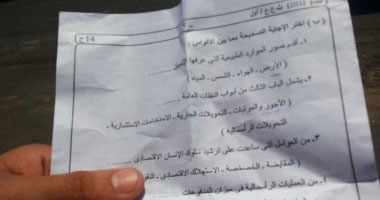 تابع [2013] ث.ع.ج / أول
ـ ٢ ـ
[ 14 ] ح
( ب ) اختر الإجابة الصحيحة مما بين الأقواس :
١- أقدم صور الموارد الطبيعية التى عرفها الإنسان ............
( الأرض - الهواء - الشمس - المياه )
٢- يشمل الباب الثالث من أبواب النفقات العامة ............
( الأجور والمرتبات - التحويلات الجارية - الاستخدامات الاستثمارية -
التحويلات الرأسمالية )
٣- من العوامل التى ساعدت على ترشيد سلوك الإنسان الاقتصادى ............
( المقايضة - الخصخصة - الاستهلاك الاقتصادى -
من العمليات الرأسمالية فى ميزان المدفوعات ............